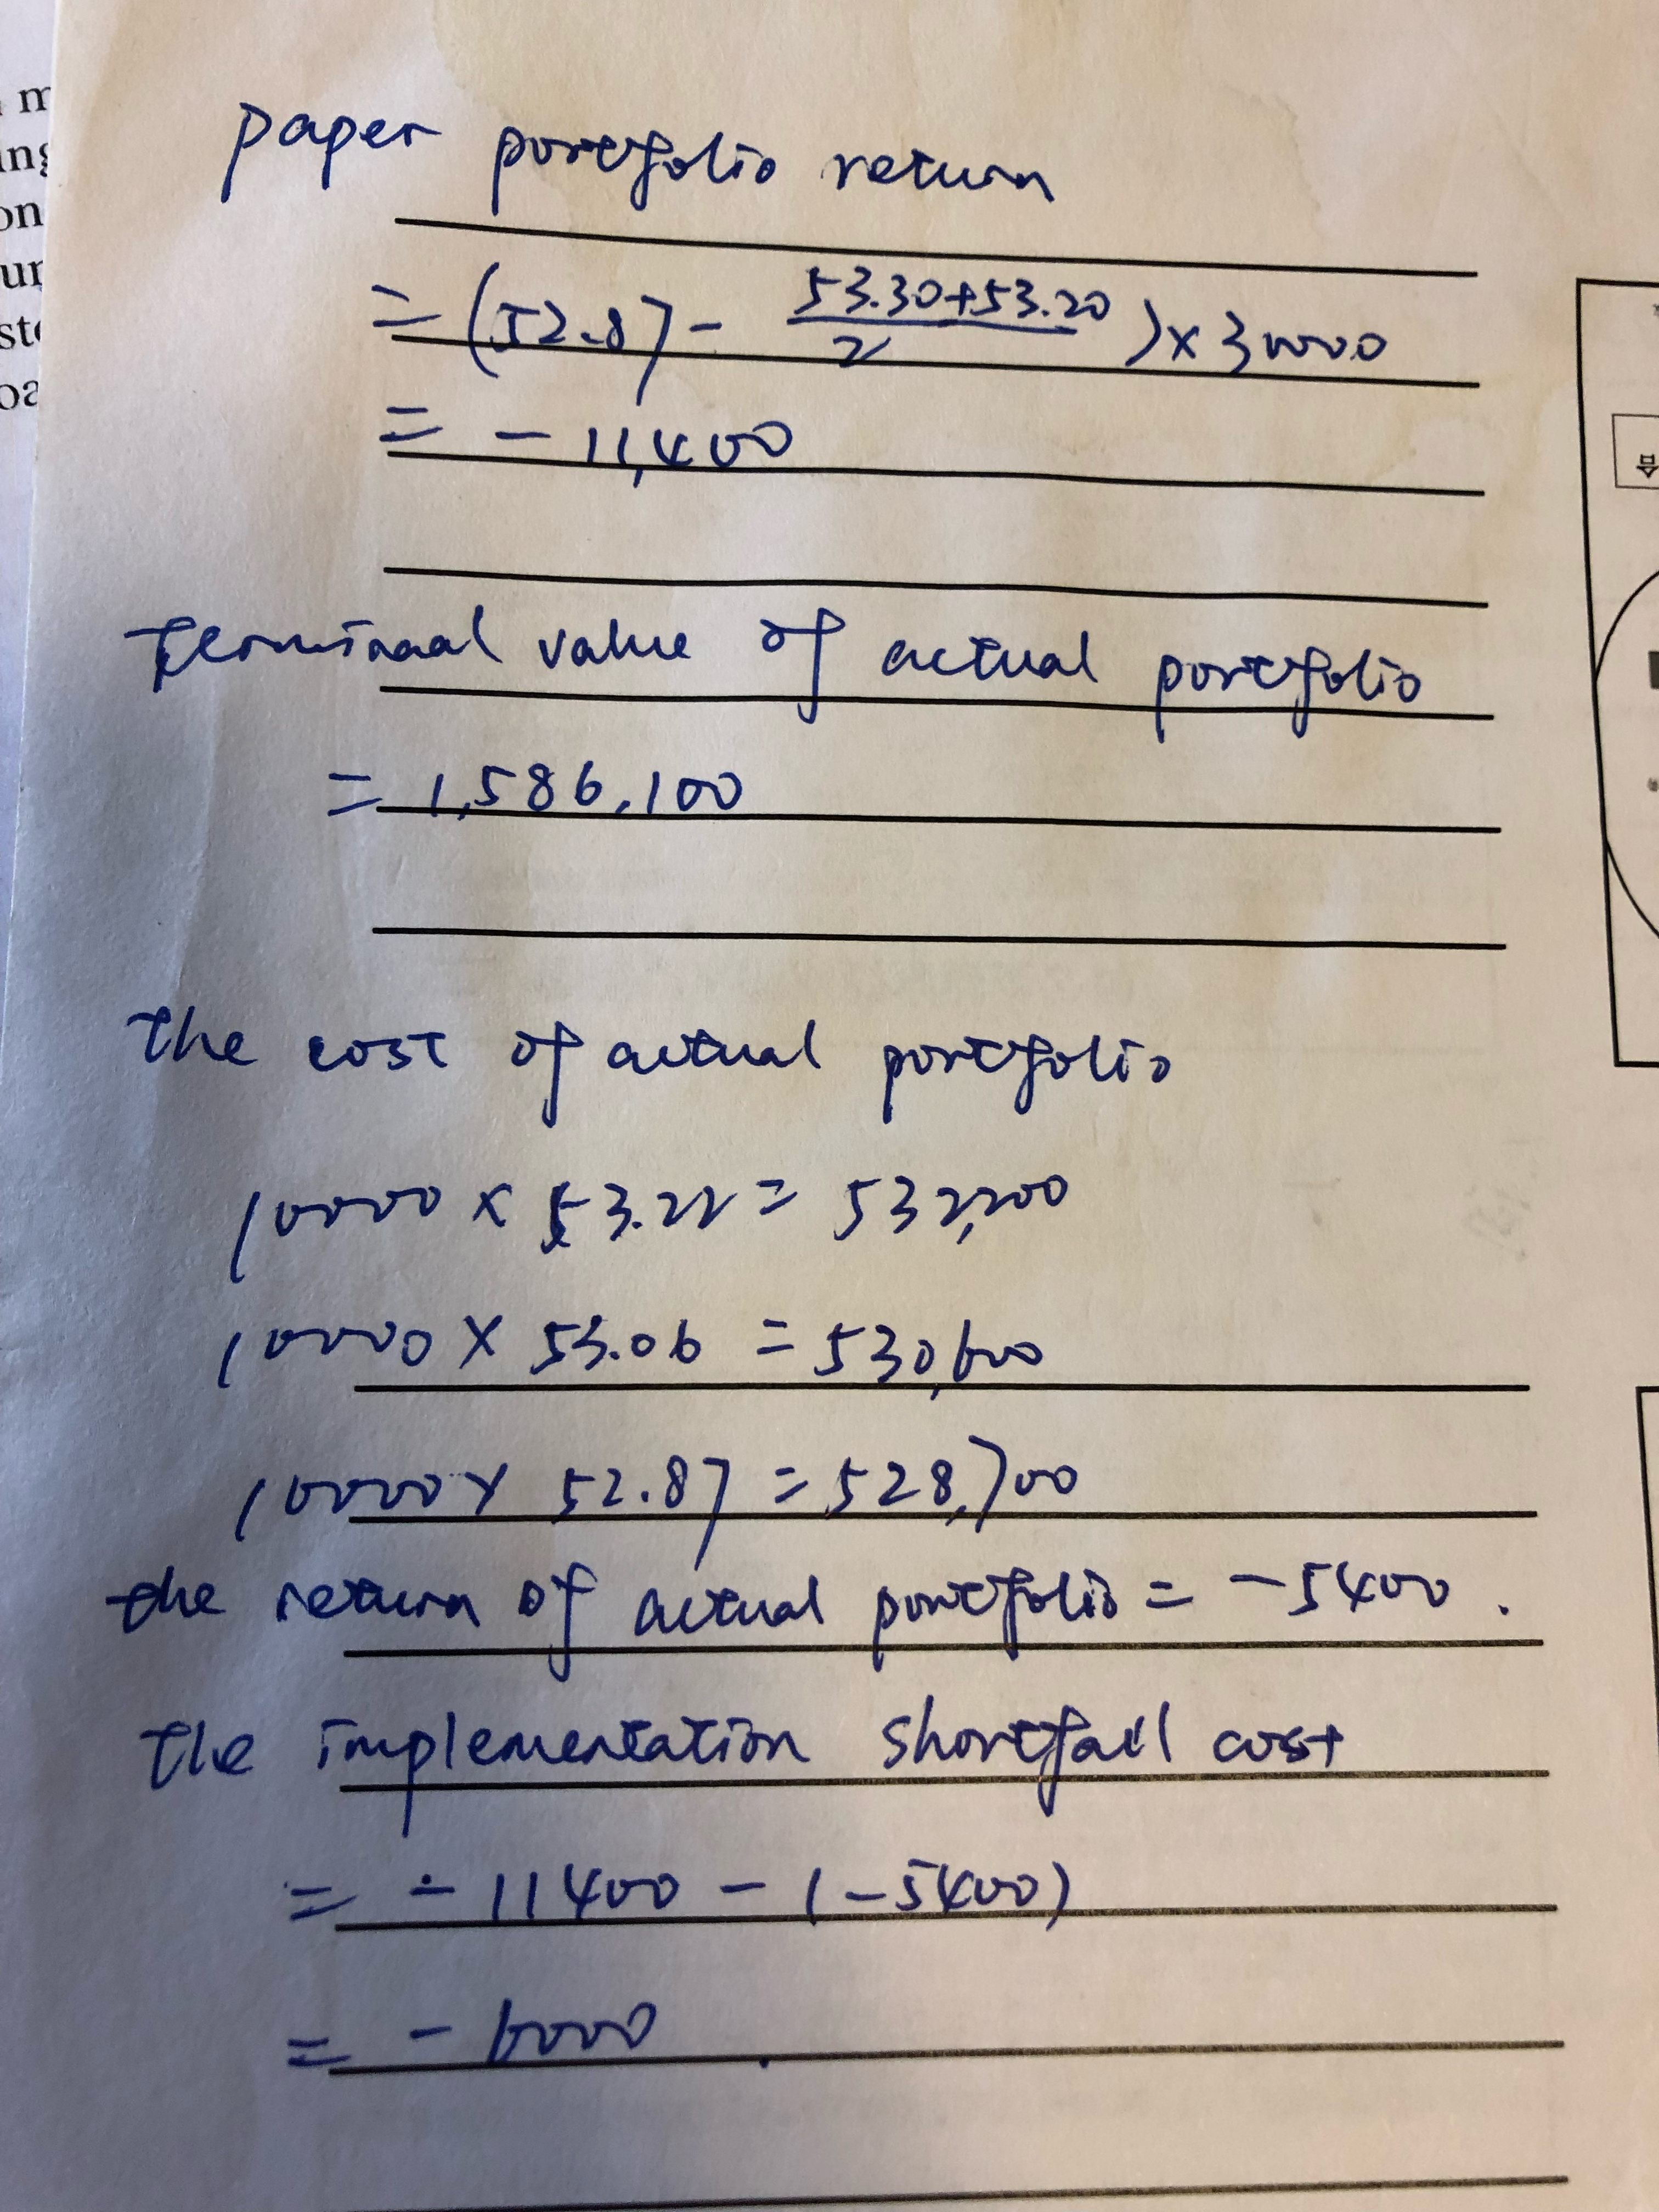 paper portfolio return
= (52.87 - (53.30+53.20)/2) × 30000
= - 11,400
terminaal value of actual portfolio
= 1,586,100
the cost of actual portfolio
10000 × 53.22 = 532,200
10000 × 53.06 = 530,600
10000 × 52.87 = 528,700
the return of actual portfolio = -5400.
the implementation shortfall cost
= - 11400 - (-5400)
= - 6000